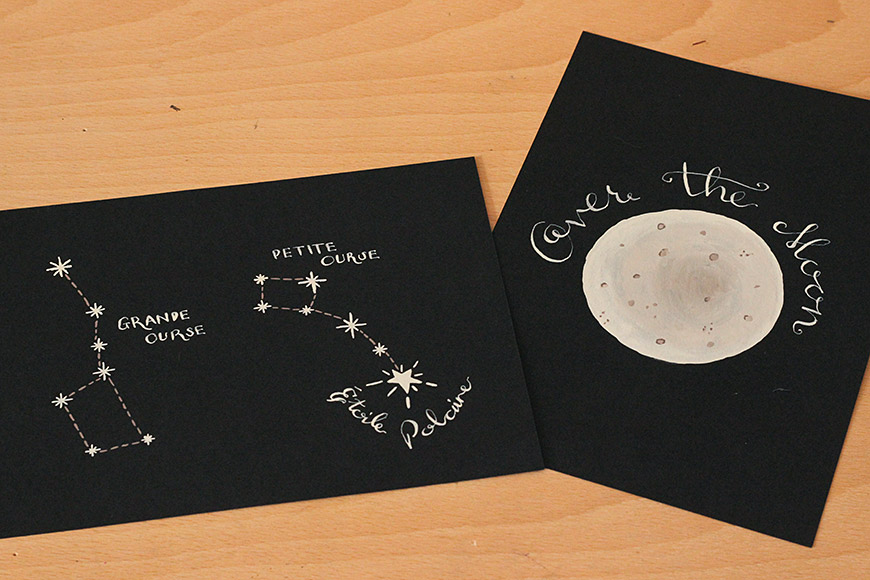 GRANDE
OURSE
PETITE
OURSE
Étoile Polaire
Over the Moon